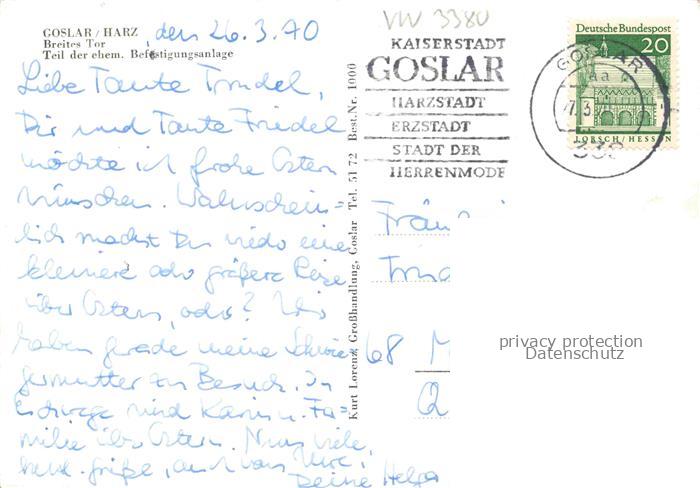 GOSLAR / HARZ
Breites Tor
Teil der ehem. Befestigungsanlage
den 26.3.70
Liebe Tante Trudel,
Dir und Tante Friedel
möchte ich frohe Ostern
wünschen. Wahrschein=
lich machst Du wieder eine
kleinere oder größere Reise
über Ostern, oder? Wir
haben gerade meine Schwie=
germutter zu Besuch. In
Eschwege sind Karin u. Fa=
milie über Ostern. Nun viele
herzl. Grüße, auch von
Deine Helga
Kurt Lorenz, Großhandlung, Goslar Tel. 51 72 Best.Nr. 1000
VW 3380
KAISERSTADT
GOSLAR
HARZSTADT
ERZSTADT
STADT DER
HERRENMODE
GOSLAR
Deutsche Bundespost
20
LORSCH / HESSEN
Fräu
Trud
68 M
Q
privacy protection
Datenschutz